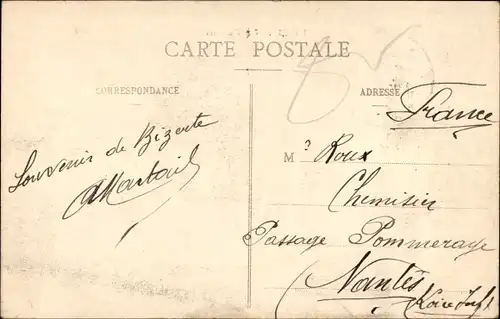 CARTE POSTALE
CORRESPONDANCE
ADRESSE
Souvenir de Bizerte
France
M? Roux
Chemisier
Passage Pommeraye
Nantes
(Loire Inf)